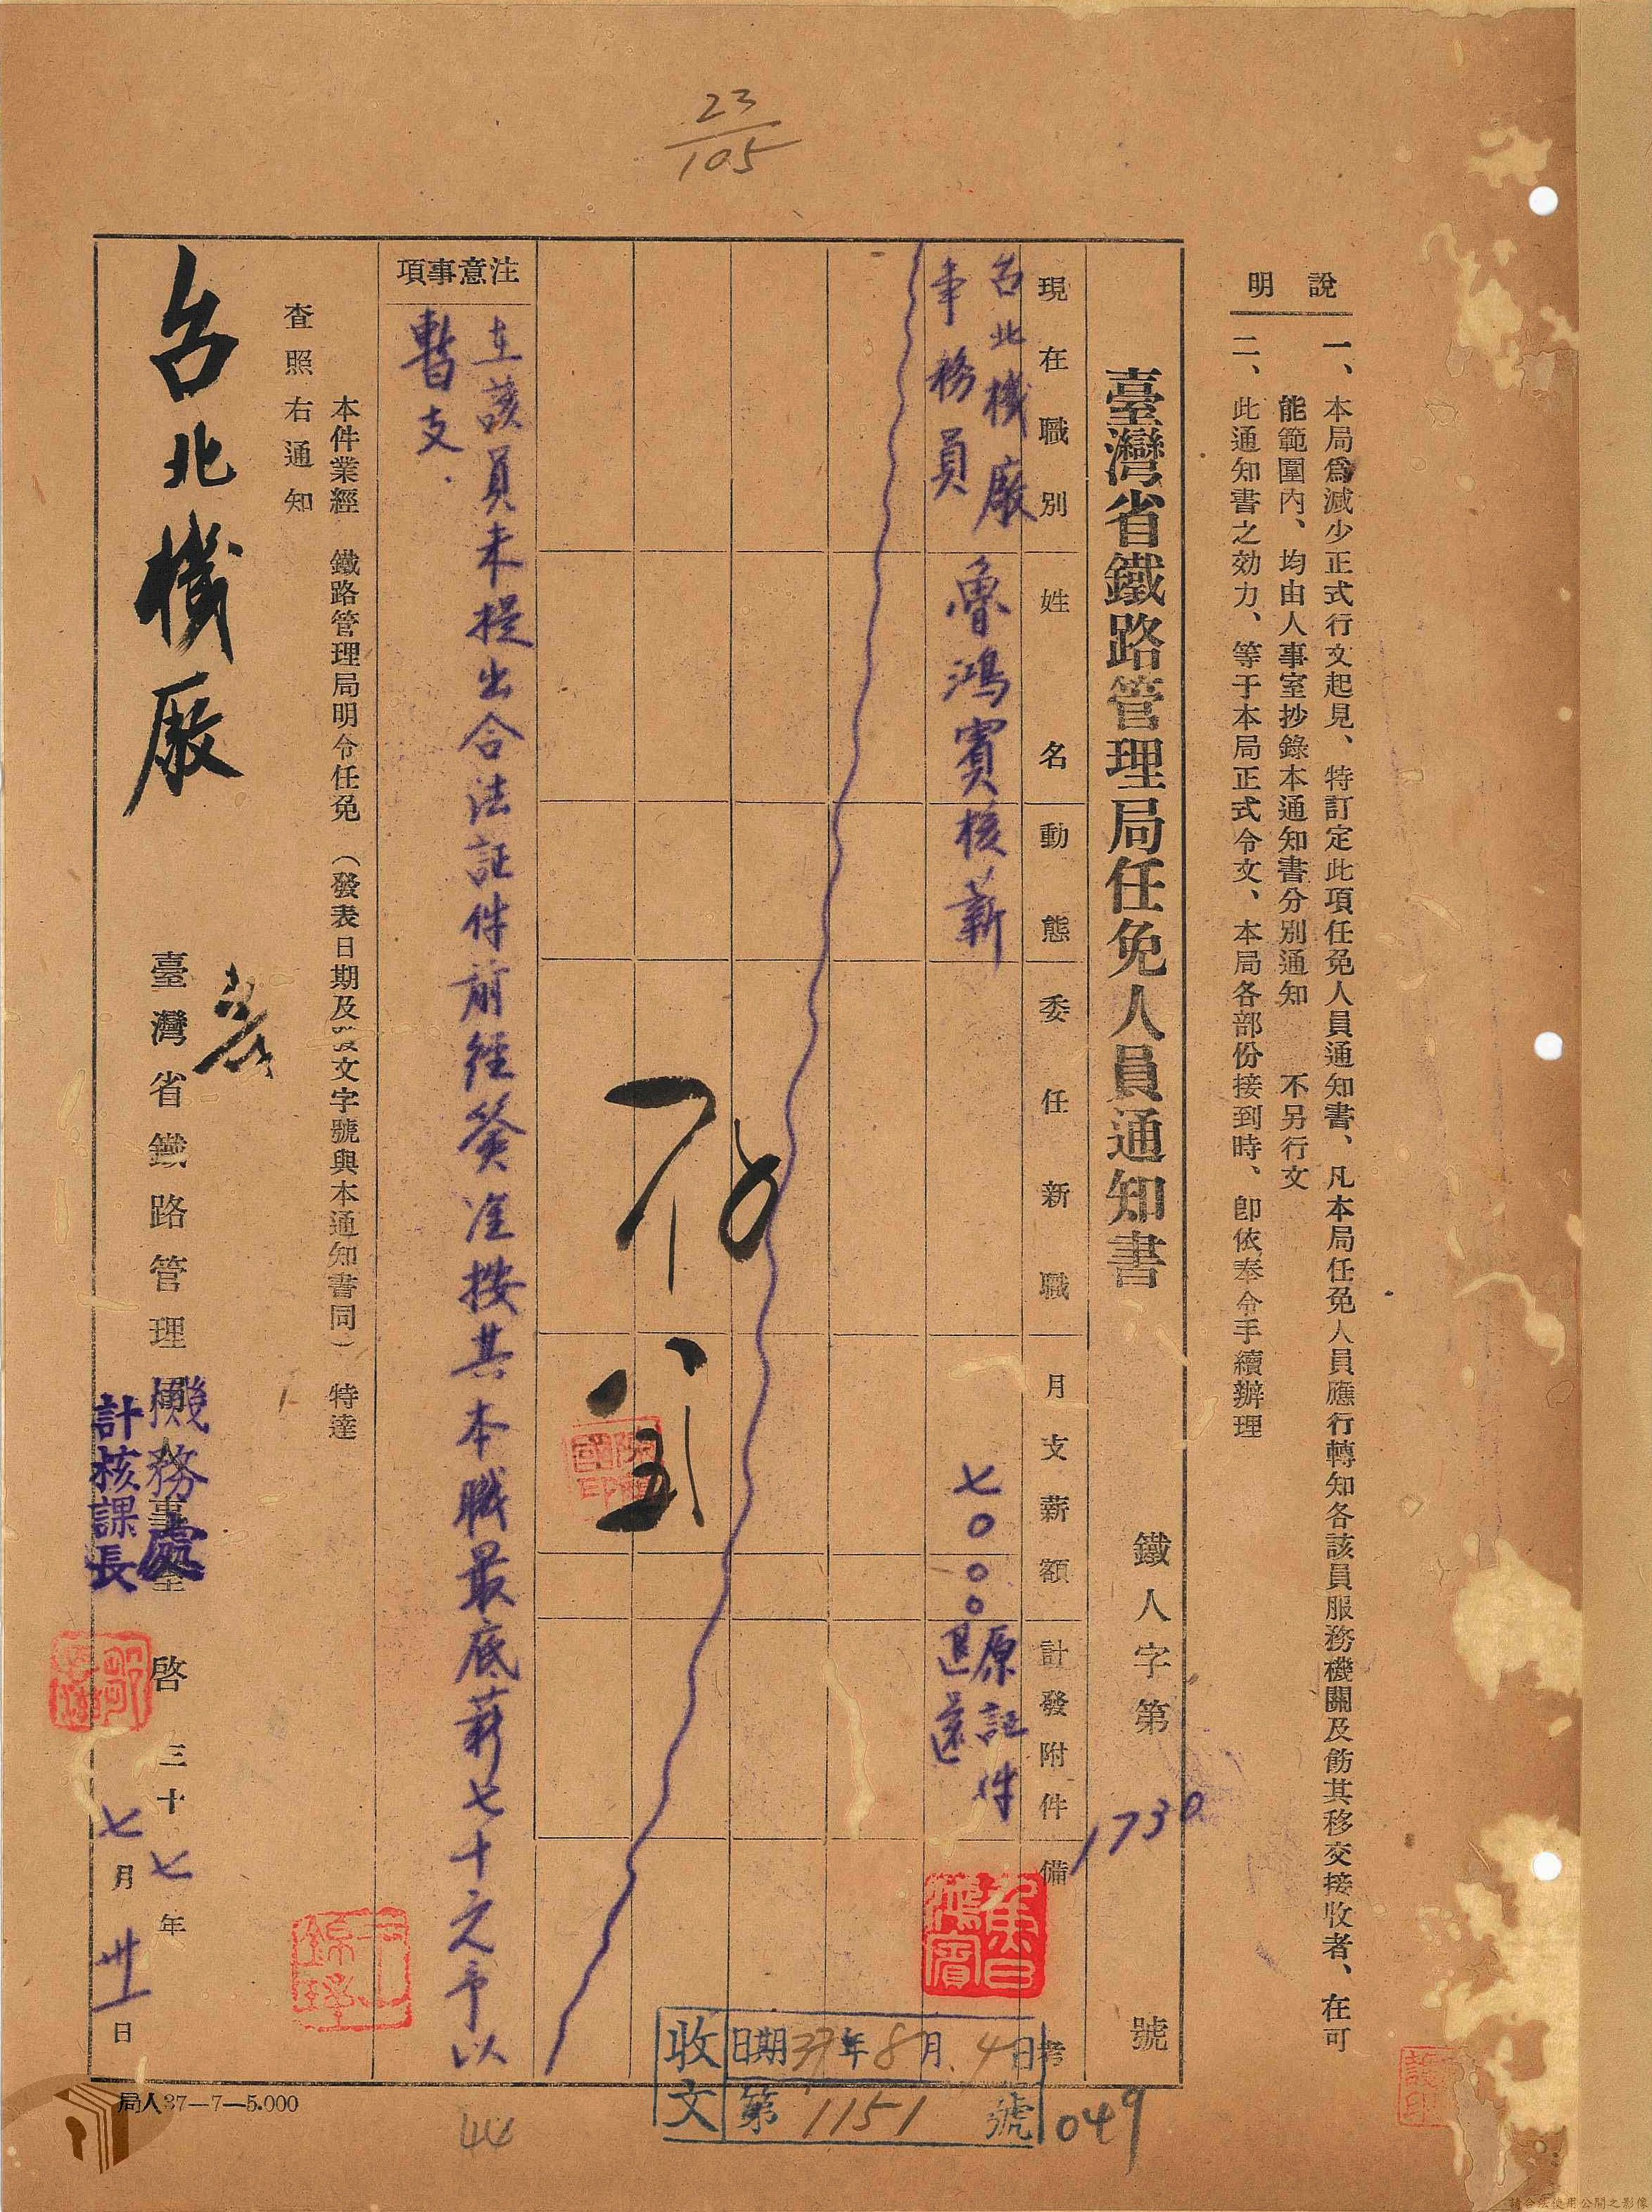 23
105
說明
一、本局爲減少正式行文起見、特訂定此項任免人員通知書、凡本局任免人員應行轉知各該員服務機關及飭其移交接收者、在可
能範圍內、均由人事室抄錄本通知書分別通知 不另行文
二、此通知書之効力、等于本局正式令文、本局各部份接到時、卽依奉令手續辦理
臺灣省鐵路管理局任免人員通知書
鐵人字第1730號
現在職別 姓名 動態 委任新職 月支薪額 計發附件 備考
台北機廠
事務員
魯鴻賓 核薪 七〇〇〇
原証件
退還
注意事項
在該員未提出合法証件前經簽准按其本職最底薪七十元予以
暫支.
本件業經 鐵路管理局明令任免(發表日期及 發文字號與本通知書同) 特達
查照右通知
台北機廠
臺灣省鐵路管理局人事室 啓
機務處
計核課長
三十七年
七月卅一日
收文
日期37年8月4日
第1151號
049
44
局人37—7—5.000
請合法使用公開之影像